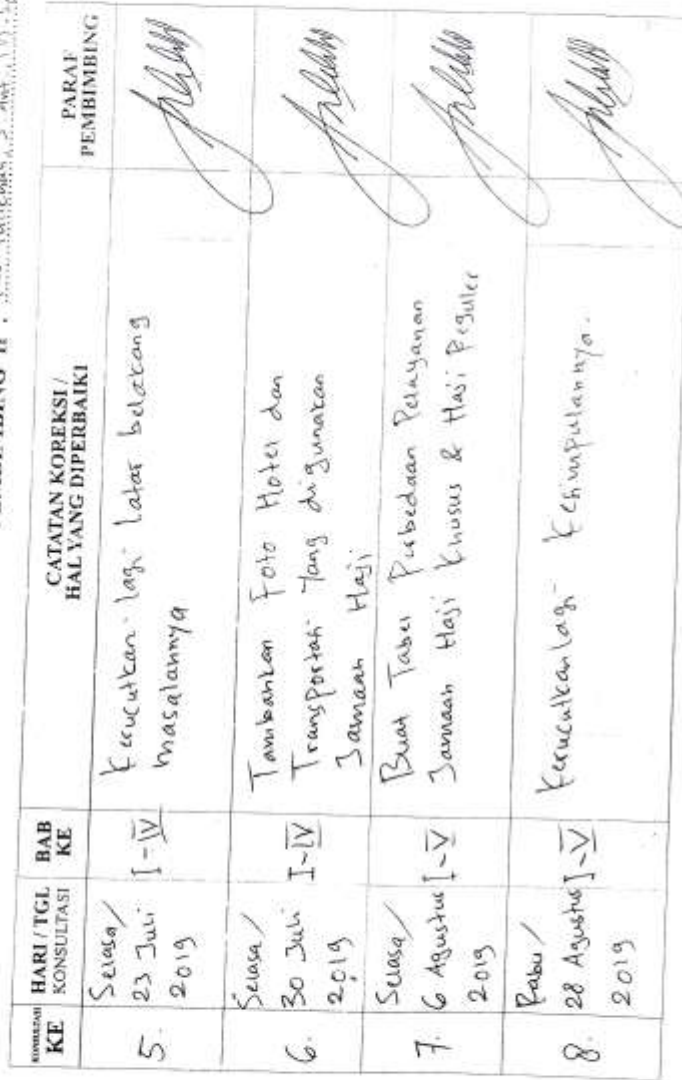 PEMBIMBING II :
KONSULTASI KE
HARI / TGL KONSULTASI
BAB KE
CATATAN KOREKSI / HAL YANG DIPERBAIKI
PARAF PEMBIMBING
5.
Selasa/
23 Juli
2019
I-IV
Kerucutkan lagi latar belakang
masalahnya
6.
Selasa/
30 Juli
2019
I-IV
Tambahkan Foto Hotel dan
Transportasi Yang digunakan
Jamaah Haji
7.
Selasa/
6 Agustus
2019
I-V
Buat Tabel Perbedaan Pelayanan
Jamaah Haji Khusus & Haji Reguler
8.
Rabu/
28 Agustus
2019
I-V
Kerucutkan lagi Kesimpulannya.